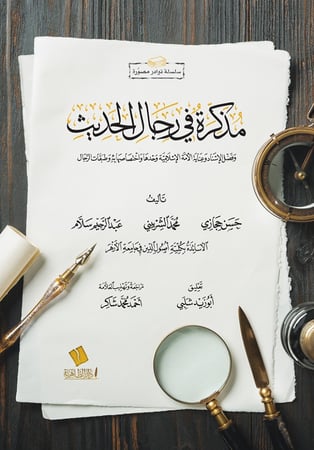 سلسلة نوادر مصورة
مذكرة في رجال الحديث
وفضل الإسناد وعناية الأمة الإسلامية وحدها واختصاصها به وطبقات الرجال
تأليف
حسن حجازي محمد الشربيني عبد الرحيم سلام
الأساتذة بكلية أصول الدين في جامعة الأزهر
تعليق
أبو زيد شلبي
مراجعة وتهذيب العلامة
أحمد محمد شاكر